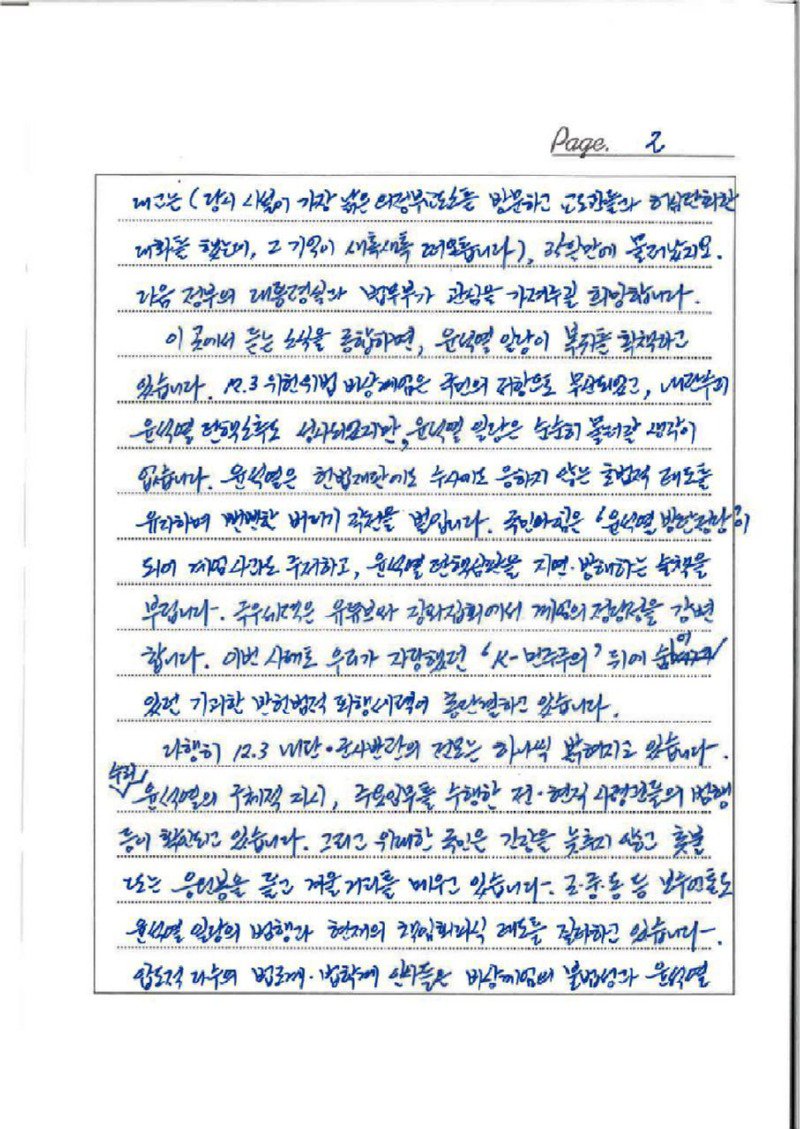 Page. 2
대고는 (당시 시설이 가장 낡은 의정부교도소를 방문하고 교도관들과 허심탄회한
대화를 했는데, 그 기억이 새록새록 떠오릅니다), 35일만에 물러났지요.
다음 정부의 대통령실과 법무부가 관심을 가져주길 희망합니다.
이 곳에서 듣는 소식을 종합하면, 윤석열 일당이 복귀를 획책하고
있습니다. 12.3 위헌위법 비상계엄은 국민의 저항으로 무산되었고, 내란수괴
윤석열 탄핵소추도 성사되었지만, 윤석열 일당은 순순히 물러갈 생각이
없습니다. 윤석열은 헌법재판에도 수사에도 응하지 않는 초법적 태도를
유지하며 뻔뻔한 버티기 작전을 벌입니다. 국민의힘은 '윤석열 방탄정당'이
되어 계엄 사과도 주저하고, 윤석열 탄핵심판을 지연·방해하는 술책을
부립니다. 극우세력은 유튜브와 장외집회에서 계엄의 정당성을 강변
합니다. 이번 사태로 우리가 자랑했던 'K-민주주의' 뒤에 숨어
있던 기괴한 반헌법적 퇴행세력이 총단결하고 있습니다.
다행히 12.3 내란·군사반란의 전모는 하나씩 밝혀지고 있습니다.
수괴 윤석열의 구체적 지시, 주요임무를 수행한 전·현직 사령관들의 범행
등이 확인되고 있습니다. 그리고 위대한 국민은 긴장을 늦추지 않고 촛불
또는 응원봉을 들고 겨울 거리를 메우고 있습니다. 조·중·동 등 보수언론도
윤석열 일당의 범행과 현재의 책임회피식 태도를 질타하고 있습니다.
압도적 다수의 법조계·법학계 인사들은 비상계엄의 불법성과 윤석열